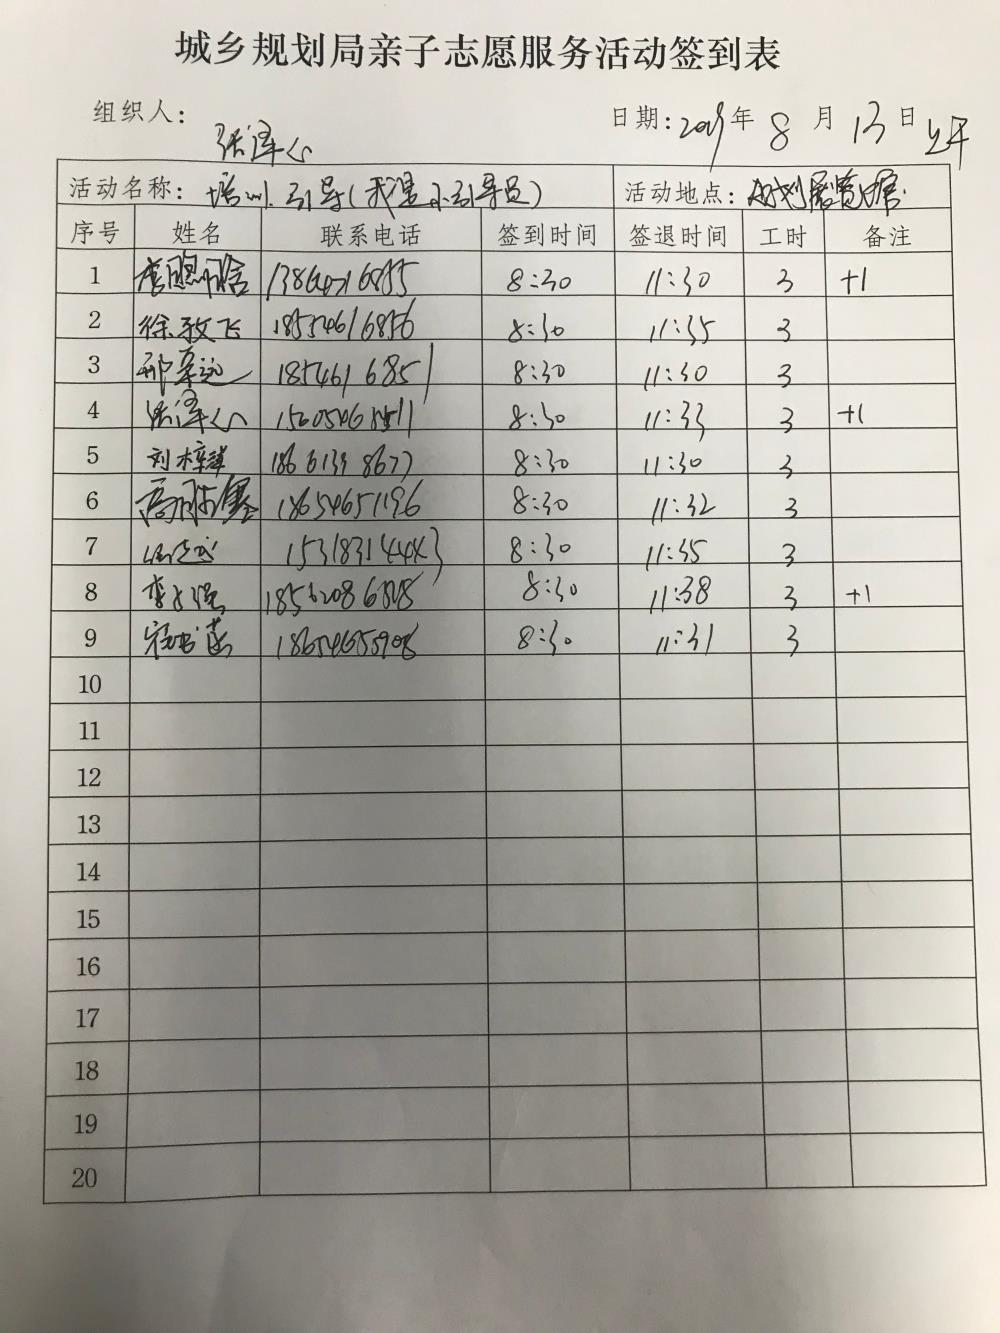 城乡规划局亲子志愿服务活动签到表
组织人: 张泽心 日期: 2019年 8 月 13 日 上午
活动名称: 培训.引导(我是小引导员) 活动地点: 规划展览馆.
序号 姓名 联系电话 签到时间 签退时间 工时 备注
1 8:30 11:30 3 +1
2 徐敬飞 18554616856 8:30 11:35 3
3 邢亲远 8:30 11:30 3
4 张泽心 8:30 11:33 3 +1
5 刘梓祥 8:30 11:30 3
6 18654651196 8:30 11:32 3
7 8:30 11:35 3
8 8:30 11:38 3 +1
9 8:30 11:31 3
10
11
12
13
14
15
16
17
18
19
20